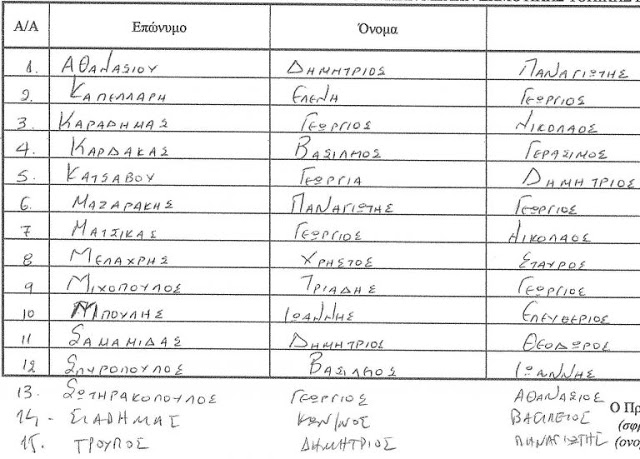 Α/Α Επώνυμο Όνομα
1. ΑΘΑΝΑΣΙΟΥ ΔΗΜΗΤΡΙΟΣ ΠΑΝΑΓΙΩΤΗΣ
2. ΚΑΠΕΛΛΑΡΗ ΕΛΕΝΗ ΓΕΩΡΓΙΟΣ
3. ΚΑΡΑΔΗΜΑΣ ΓΕΩΡΓΙΟΣ ΝΙΚΟΛΑΟΣ
4. ΚΑΡΔΑΚΑΣ ΒΑΣΙΛΕΙΟΣ ΓΕΡΑΣΙΜΟΣ
5. ΚΑΤΣΑΒΟΥ ΓΕΩΡΓΙΑ ΔΗΜΗΤΡΙΟΣ
6. ΜΑΖΑΡΑΚΗΣ ΠΑΝΑΓΙΩΤΗΣ ΓΕΩΡΓΙΟΣ
7 ΜΑΤΣΙΚΑΣ ΓΕΩΡΓΙΟΣ ΝΙΚΟΛΑΟΣ
8 ΜΕΛΑΧΡΗΣ ΧΡΗΣΤΟΣ ΣΤΑΥΡΟΣ
9 ΜΙΧΟΠΟΥΛΟΣ ΤΡΙΑΔΗΣ ΓΕΩΡΓΙΟΣ
10 ΜΠΟΥΛΗΣ ΙΩΑΝΝΗΣ ΕΛΕΥΘΕΡΙΟΣ
11 ΣΑΜΑΜΙΔΑΣ ΔΗΜΗΤΡΙΟΣ ΘΕΟΔΩΡΟΣ
12 ΣΠΥΡΟΠΟΥΛΟΣ ΒΑΣΙΛΕΙΟΣ ΙΩΑΝΝΗΣ
13. ΣΩΤΗΡΑΚΟΠΟΥΛΟΣ ΓΕΩΡΓΙΟΣ ΑΘΑΝΑΣΙΟΣ
Ο Πρ
14.- ΣΙΑΔΗΜΑΣ ΚΩΝ/ΝΟΣ ΒΑΣΙΛΕΙΟΣ (σφρ
15. ΤΡΟΥΠΟΣ ΔΗΜΗΤΡΙΟΣ ΠΑΝΑΓΙΩΤΗΣ (ονο